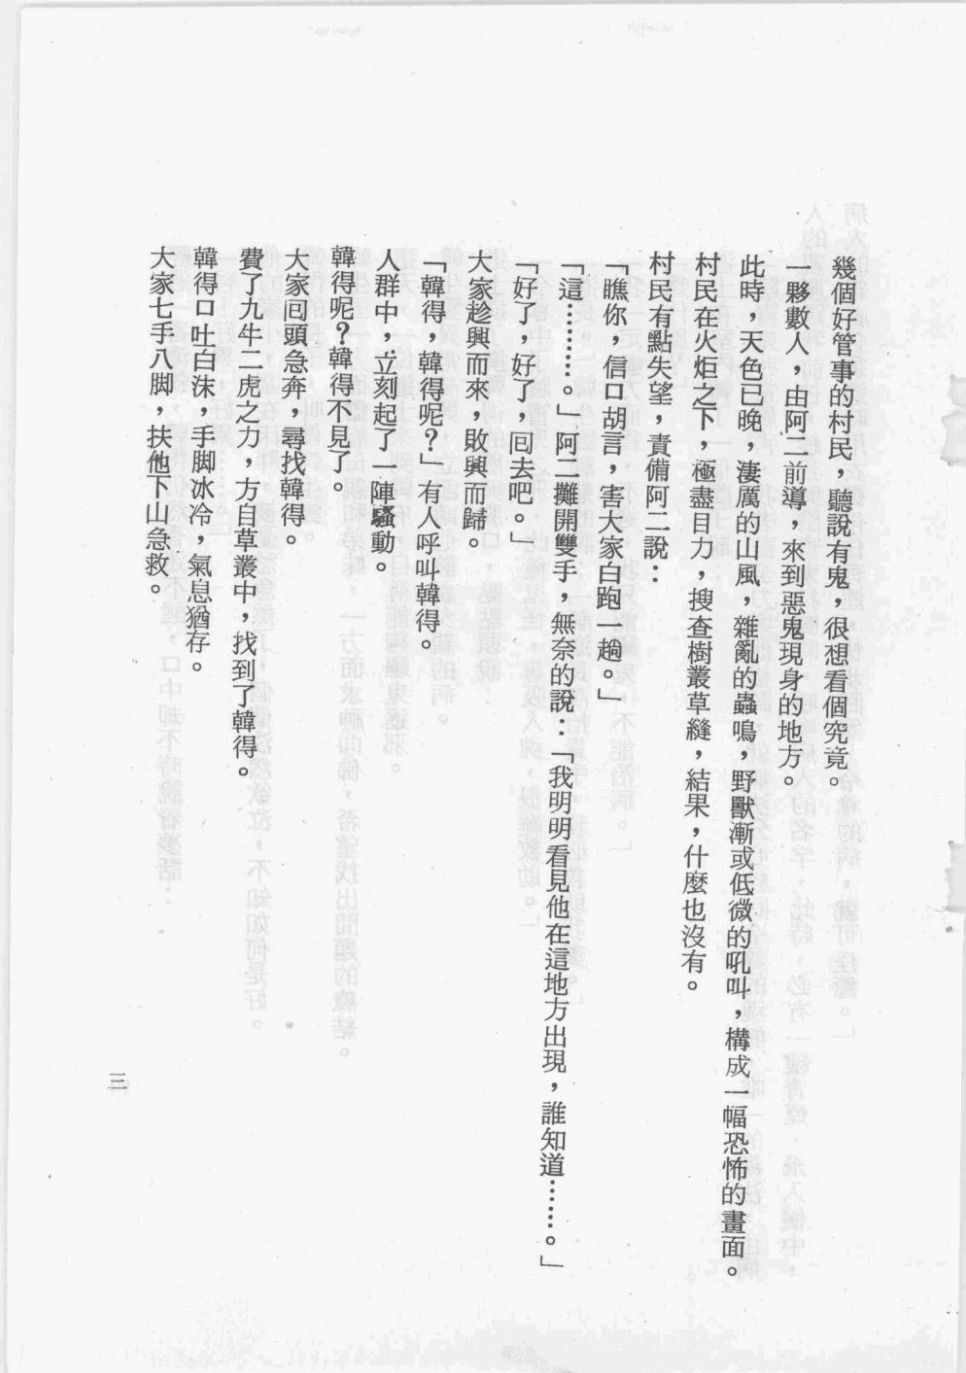 幾個好管事的村民，聽說有鬼，很想看個究竟。
一夥數人，由阿二前導，來到惡鬼現身的地方。
此時，天色已晚，淒厲的山風，雜亂的蟲鳴，野獸漸或低微的吼叫，構成一幅恐怖的畫面。
村民在火炬之下，極盡目力，搜查樹叢草縫，結果，什麼也沒有。
村民有點失望，責備阿二說：
「瞧你，信口胡言，害大家白跑一趟。」
「這………。」阿二攤開雙手，無奈的說：「我明明看見他在這地方出現，誰知道……。」
「好了，好了，回去吧。」
大家趁興而來，敗興而歸。
「韓得，韓得呢？」有人呼叫韓得。
人群中，立刻起了一陣騷動。
韓得呢？韓得不見了。
大家回頭急奔，尋找韓得。
費了九牛二虎之力，方自草叢中，找到了韓得。
韓得口吐白沫，手脚冰冷，氣息猶存。
大家七手八脚，扶他下山急救。
三